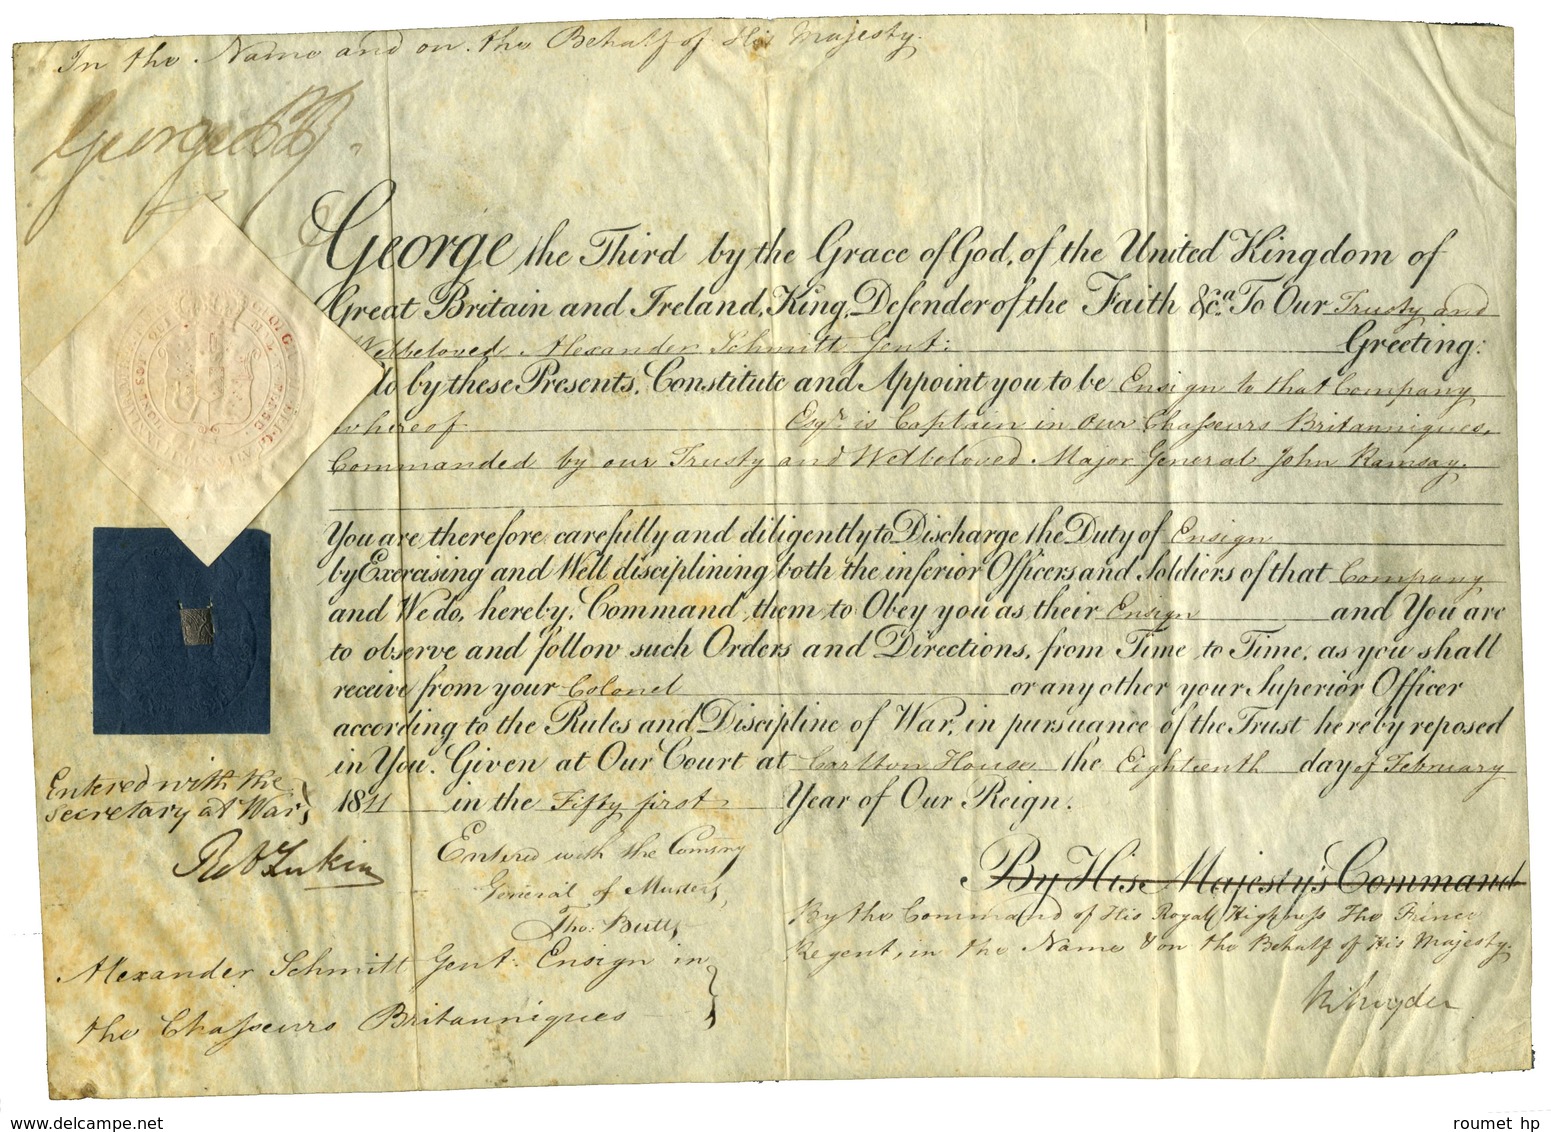 In the Name and on the Behalf of His Majesty.
George PR
George the Third by the Grace of God, of the United Kingdom of
Great Britain and Ireland, King, Defender of the Faith &c.a To Our Trusty and
Welbeloved Alexander Schmitt Gent: Greeting:
do by these Presents, Constitute and Appoint you to be Ensign to that Company
whereof Esqr. is Captain in our Chasseurs Britanniques,
Commanded by our Trusty and Welbeloved Major General John Ramsay.
You are therefore carefully and diligently to Discharge the Duty of Ensign
by Exercising and Well disciplining both the inferior Officers and Soldiers of that Company
and We do, hereby, Command them to Obey you as their Ensign and You are
to observe and follow such Orders and Directions, from Time to Time, as you shall
receive from your Colonel or any other your Superior Officer
according to the Rules and Discipline of War, in pursuance of the Trust hereby reposed
in You. Given at Our Court at Carlton House the Eighteenth day of February
1811 in the Fifty first Year of Our Reign.
Entered with the
Secretary at War,
Rob Lukin
Entered with the Comsry
General of Musters,
Tho: Butts
By His Majesty's Command
By the Command of His Royal Highness The Prince
Regent, in the Name & on the Behalf of His Majesty.
R Ryder
Alexander Schmitt Gent: Ensign in
the Chasseurs Britanniques
www.delcampe.net
roumet hp